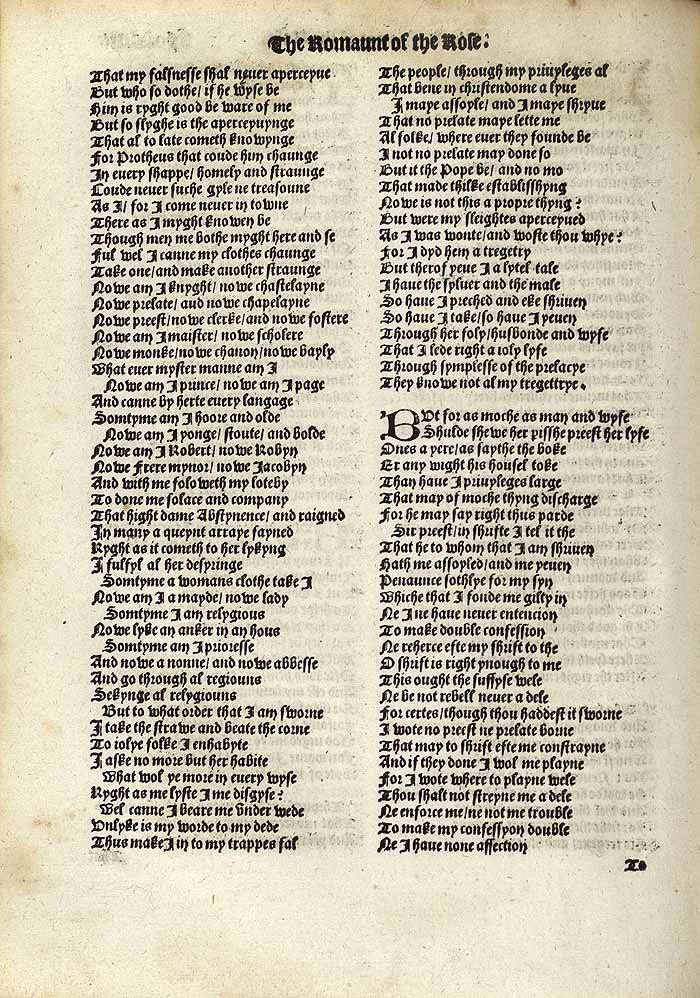 The Romaunt of the Rose:
That my falsnesse shal never aperceyve
But who so dothe/ if he wyse be
Him is ryght good be ware of me
But so slyghe is the aperceyuynge
That al to late cometh knowynge
For Protheus that coude him chaunge
In every shappe/ homely and straunge
Coude never suche gyle ne treasoune
As I/ for I come never in towne
There as I myght knowen be
Though men me bothe myght here and se
Ful wel I canne my clothes chaunge
Take one/and make another straunge
Nowe am I knyght/ nowe chastelayne
Nowe prelate/ aud nowe chapelayne
Nowe preest/nowe clerke/and nowe fostere
Nowe am I maister/ nowe scholere
Nowe monke/nowe chanon/nowe bayly
What ever myster manne am I
Nowe am I prince/ nowe am I page
And canne by herte every langage
Somtyme am I hoore and olde
Nowe am I yonge/ stoute/ and bolde
Nowe am I Robert/ nowe Robyn
Nowe Frere mynor/ nowe Jacobyn
And with me foloweth my loteby
To done me solace and company
That hight dame Abstynence/ and raigned
In many a queynt arraye fayned
Ryght as it cometh to her lykyng
I fulfyl al her desyringe
Somtyme a womans clothe take I
Nowe am I a mayde/ nowe lady
Somtyme I am relygious
Nowe lyke an anker in an hous
Somtyme am I prioresse
And nowe a nonne/ and nowe abbesse
And go through al regiouns
Sekynge al relygiouns
But to what order that I am sworne
I take the strawe and beate the corne
To iolye folke I enhabyte
I aske no more but her habite
What wol ye more in every wyse
Ryght as me lyste I me disgyse?
Wel canne I beare me vnder wede
Vnlyke is my worde to my dede
Thus make I in to my trappes fal
The people/ through my priuyleges al
That bene in christendome a lyue
I maye assoyle/ and I maye shryue
That no prelate maye lette me
Al folke/ where ever they founde be
I not no prelate may done so
But it the Pope be/ and no mo
That made thilke establisshyng
Nowe is not this a propre thyng?
But were my sleightes aperceyued
As I was wonte/and woste thou whye?
For I dyd hem a tregetry
But therof yeue I a lytel tale
I haue the syluer and the male
So haue I preched and eke shriuen
So haue I take/so haue I yeuen
Through her foly/husbonde and wyfe
That I lede right a ioly lyfe
Through symplesse of the prelacye
They knowe not al my tregettrye.
BOt for as moche as man and wyfe
Shulde shewe her pisshe preest her lyfe
Ones a yere/as saythe the boke
Er any wight his housel toke
Than haue I priuyleges large
That may of moche thyng discharge
For he may say right thus parde
Sir preest/in shrifte I tel it the
That he to whom that I am shriuen
Hath me assoyled/and me yeuen
Penaunce sothlye for my syn
Whiche that I fonde me gilty in
Ne I ne haue never entencion
To make double confession
Ne reherce efte my shrift to the
O shrift is right ynough to me
This ought the suffyse wele
Ne be not rebell never a dele
For certes/though thou haddest it sworne
I wote no preest ne prelate borne
That may to shrift efte me constrayne
And if they done I wol me playne
For I wote where to playne wele
Thou shalt not streyne me a dele
Ne enforce me/ne not me trouble
To make my confessyon double
Ne I haue none affection
To